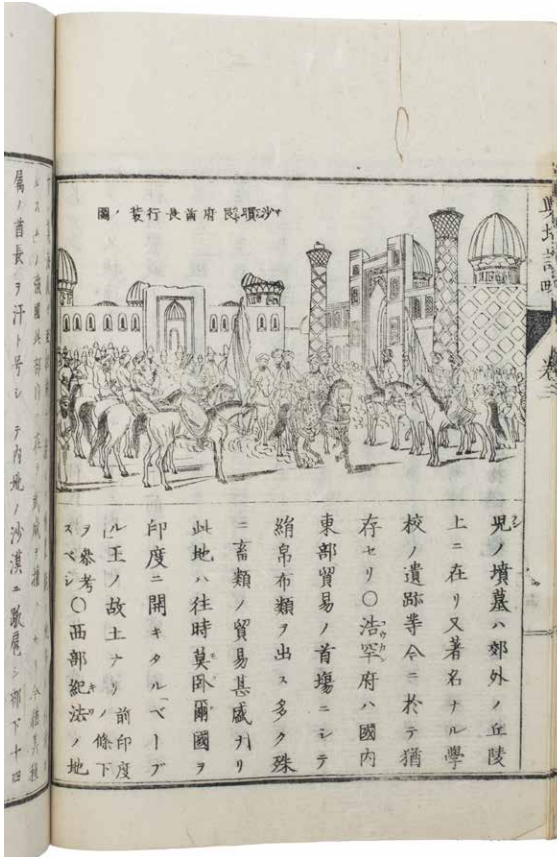 輿地誌略 卷三
沙
府酋長行裝ノ圖
児ノ墳墓ハ郊外ノ丘陵
上ニ在リ又著名ナル學
校ノ遺跡等今ニ於テ猶
存セリ〇浩罕府ハ國内
東部貿易ノ首塲ニシテ
絹帛布類ヲ出ス多ク殊
ニ畜類ノ貿易甚盛ナリ
此地ハ往時莫卧爾國ヲ
印度ニ開キタル「ベーブ
ル」王ノ故土ナリ 前印度ノ條下
ヲ參考スベシ〇西部紀法ノ地
属ノ酋長ヲ汗ト号シテ内 ノ沙漠ニ シ部下十四